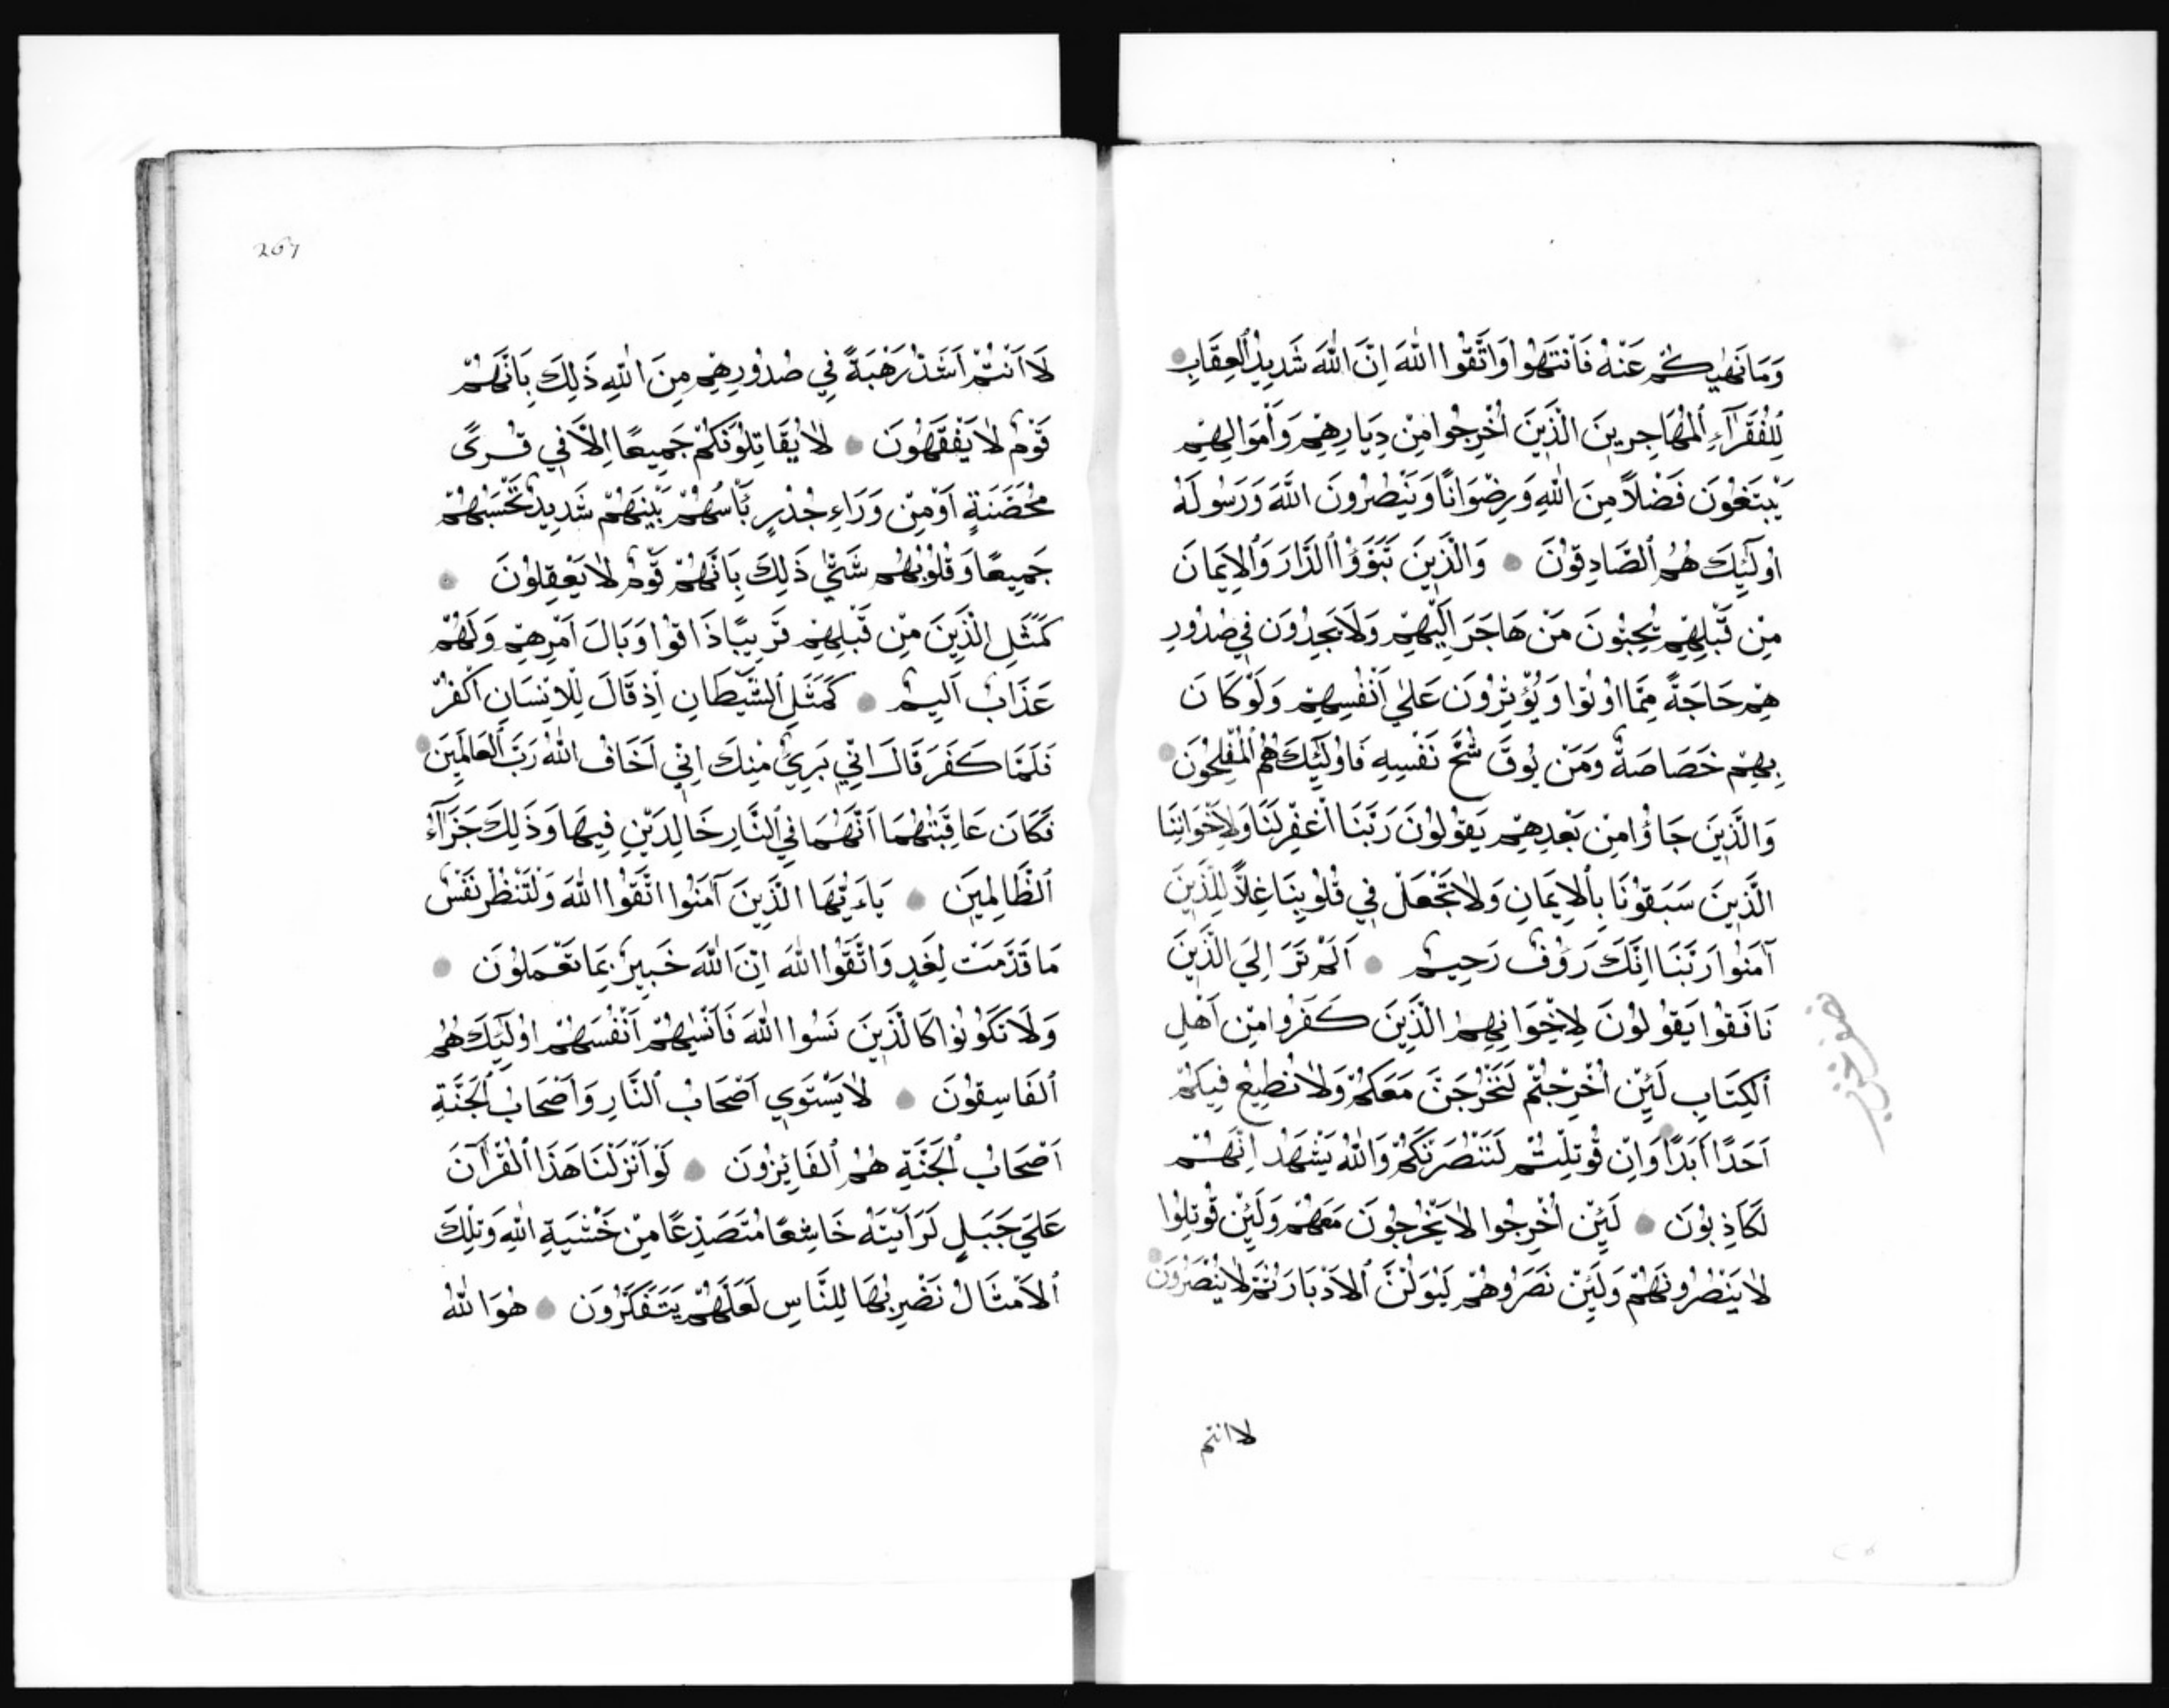 وَمَا نَهٰيكُمْ عَنْهُ فَانْتَهُوا وَاتَّقُوا اللّٰهَ اِنَّ اللّٰهَ شَدِيدُ الْعِقَابِ
لِلْفُقَرَآءِ الْمُهَاجِرِينَ الَّذِينَ اُخْرِجُوا مِنْ دِيَارِهِمْ وَاَمْوَالِهِمْ
يَبْتَغُونَ فَضْلاً مِنَ اللّٰهِ وَرِضْوَانًا وَيَنْصُرُونَ اللّٰهَ وَرَسُولَهُ
اُولٰٓئِكَ هُمُ الصَّادِقُونَ وَالَّذِينَ تَبَوَّؤُا الدَّارَ وَالْاِيمَانَ
مِنْ قَبْلِهِمْ يُحِبُّونَ مَنْ هَاجَرَ اِلَيْهِمْ وَلَا يَجِدُونَ فِي صُدُورِ
هِمْ حَاجَةً مِمَّا اُوتُوا وَيُؤْثِرُونَ عَلٰي اَنْفُسِهِمْ وَلَوْ كَانَ
بِهِمْ خَصَاصَةٌ وَمَنْ يُوقَ شُحَّ نَفْسِهِ فَاُولٰٓئِكَ هُمُ الْمُفْلِحُونَ
وَالَّذِينَ جَاؤُا مِنْ بَعْدِهِمْ يَقُولُونَ رَبَّنَا اغْفِرْ لَنَا وَلِاِخْوَانِنَا
الَّذِينَ سَبَقُونَا بِالْاِيمَانِ وَلَا تَجْعَلْ فِي قُلُوبِنَا غِلاًّ لِلَّذِينَ
آمَنُوا رَبَّنَا اِنَّكَ رَؤُفٌ رَحِيمٌ اَلَمْ تَرَ اِلَي الَّذِينَ
نَافَقُوا يَقُولُونَ لِاِخْوَانِهِمُ الَّذِينَ كَفَرُوا مِنْ اَهْلِ
الْكِتَابِ لَئِنْ اُخْرِجْتُمْ لَنَخْرُجَنَّ مَعَكُمْ وَلَا نُطِيعُ فِيكُمْ
اَحَدًا اَبَدًا وَاِنْ قُوتِلْتُمْ لَنَنْصُرَنَّكُمْ وَاللّٰهُ يَشْهَدُ اِنَّهُمْ
لَكَاذِبُونَ لَئِنْ اُخْرِجُوا لَا يَخْرُجُونَ مَعَهُمْ وَلَئِنْ قُوتِلُوا
لَا يَنْصُرُونَهُمْ وَلَئِنْ نَصَرُوهُمْ لَيُوَلُّنَّ الْاَدْبَارَ ثُمَّ لَا يُنْصَرُونَ
لا انتم
267
لَا اَنْتُمْ اَشَدُّ رَهْبَةً فِي صُدُورِهِمْ مِنَ اللّٰهِ ذٰلِكَ بِاَنَّهُمْ
قَوْمٌ لَا يَفْقَهُونَ لَا يُقَاتِلُونَكُمْ جَمِيعًا اِلاَّ فِي قُرًى
مُحَصَّنَةٍ اَوْ مِنْ وَرَاءِ جُدُرٍ بَأْسُهُمْ بَيْنَهُمْ شَدِيدٌ تَحْسَبُهُمْ
جَمِيعًا وَقُلُوبُهُمْ شَتّٰي ذٰلِكَ بِاَنَّهُمْ قَوْمٌ لَا يَعْقِلُونَ
كَمَثَلِ الَّذِينَ مِنْ قَبْلِهِمْ قَرِيبًا ذَاقُوا وَبَالَ اَمْرِهِمْ وَلَهُمْ
عَذَابٌ اَلِيمٌ كَمَثَلِ الشَّيْطَانِ اِذْ قَالَ لِلْاِنْسَانِ اكْفُرْ
فَلَمَّا كَفَرَ قَالَ اِنِّي بَرِيٌ مِنْكَ اِنِّي اَخَافُ اللّٰهَ رَبَّ الْعَالَمِينَ
فَكَانَ عَاقِبَتَهُمَا اَنَّهُمَا فِي النَّارِ خَالِدَيْنِ فِيهَا وَذٰلِكَ جَزَآءُ
الظَّالِمِينَ يَاءَيُّهَا الَّذِينَ آمَنُوا اتَّقُوا اللّٰهَ وَلْتَنْظُرْ نَفْسٌ
مَا قَدَّمَتْ لِغَدٍ وَاتَّقُوا اللّٰهَ اِنَّ اللّٰهَ خَبِيرٌ بِمَا تَعْمَلُونَ
وَلَا تَكُونُوا كَالَّذِينَ نَسُوا اللّٰهَ فَاَنْسٰيهُمْ اَنْفُسَهُمْ اُولٰٓئِكَ هُمُ
الْفَاسِقُونَ لَا يَسْتَوِي اَصْحَابُ النَّارِ وَاَصْحَابُ الْجَنَّةِ
اَصْحَابُ الْجَنَّةِ هُمُ الْفَائِزُونَ لَوْ اَنْزَلْنَا هٰذَا الْقُرْآنَ
عَلَي جَبَلٍ لَرَاَيْتَهُ خَاشِعًا مُتَصَدِّعًا مِنْ خَشْيَةِ اللّٰهِ وَتِلْكَ
الْاَمْثَالُ نَضْرِبُهَا لِلنَّاسِ لَعَلَّهُمْ يَتَفَكَّرُونَ هُوَ اللّٰهُ